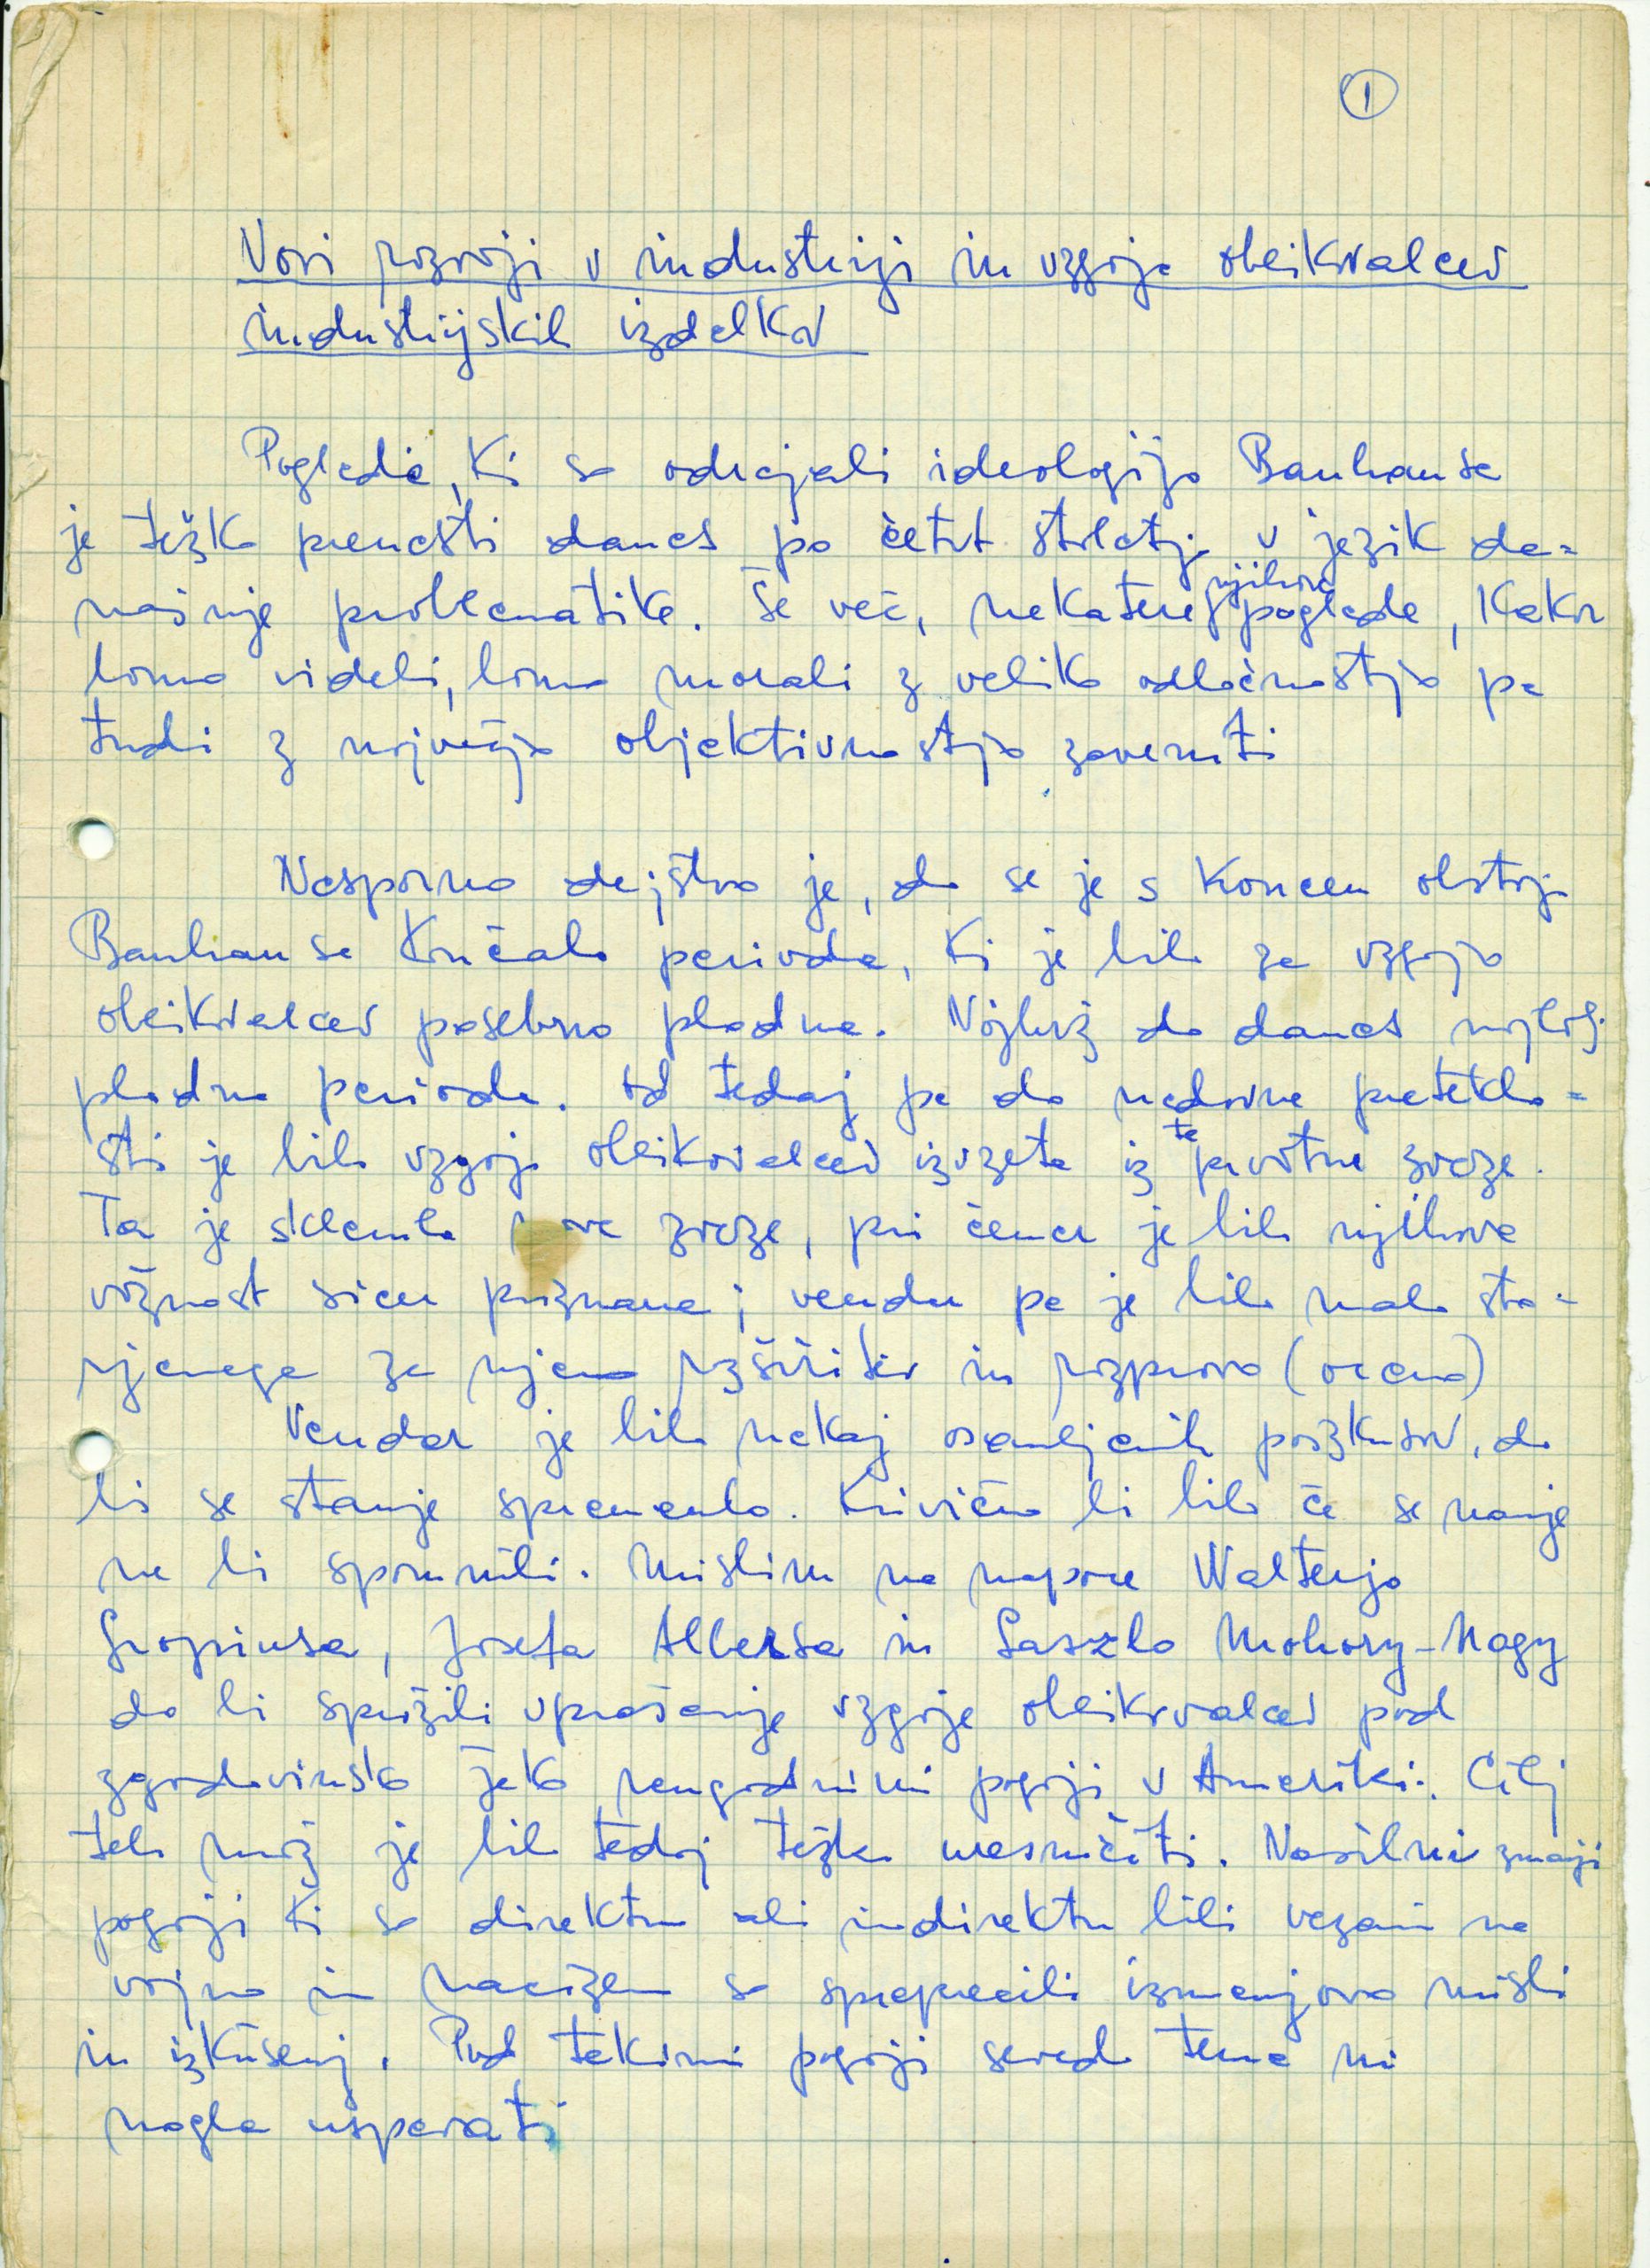 1
Novi razvoji v industriji in vzgoja oblikovalcev
industrijskih izdelkov
Poglede, ki so odrejali ideologijo Bauhausa
je težko prenesti danes po četrt stoletja v jezik da=
našnje problematike. Še več, nekatere njihove poglede, kakor
bomo videli, bomo morali z veliko odločnostjo pa
tudi z največjo objektivnostjo zavrniti
Nesporno dejstvo je, da se je s koncem obstoja
Bauhausa končala perioda, ki je bila za vzgojo
oblikovalcev posebno plodna. Najbrž do danes najbolj
plodna perioda. Od tedaj pa do nedavne preteklo=
sti je bila vzgoja oblikovalcev izvzeta iz te prvotne zveze.
Ta je sklenila nove zveze, pri čemer je bila njihova
važnost sicer priznana; vendar pa je bilo malo sto-
rjenega za njeno razširitev in razpravo (oceno)
Vendar je bilo nekaj osamljenih poizkusov, da
bi se stanje spremenilo. Krivično bi bilo če se nanje
ne bi spomnili. Mislim na napore Walterja
Gropiusa, Josefa Albersa in Laszlo Moholy-Nagy
da bi sprožili vprašanje vzgoje oblikovalcev pod
zgodovinsko jako neugodnimi pogoji v Ameriki. Cilj
teh mož je bilo tedaj težko uresničiti. Nasilni zunanji
pogoji ki so direktno ali indirektno bili vezani na
vojno in nacizem so preprečili izmenjavo misli
in izkušenj. Pod takimi pogoji seveda tema ni
mogla uspevati